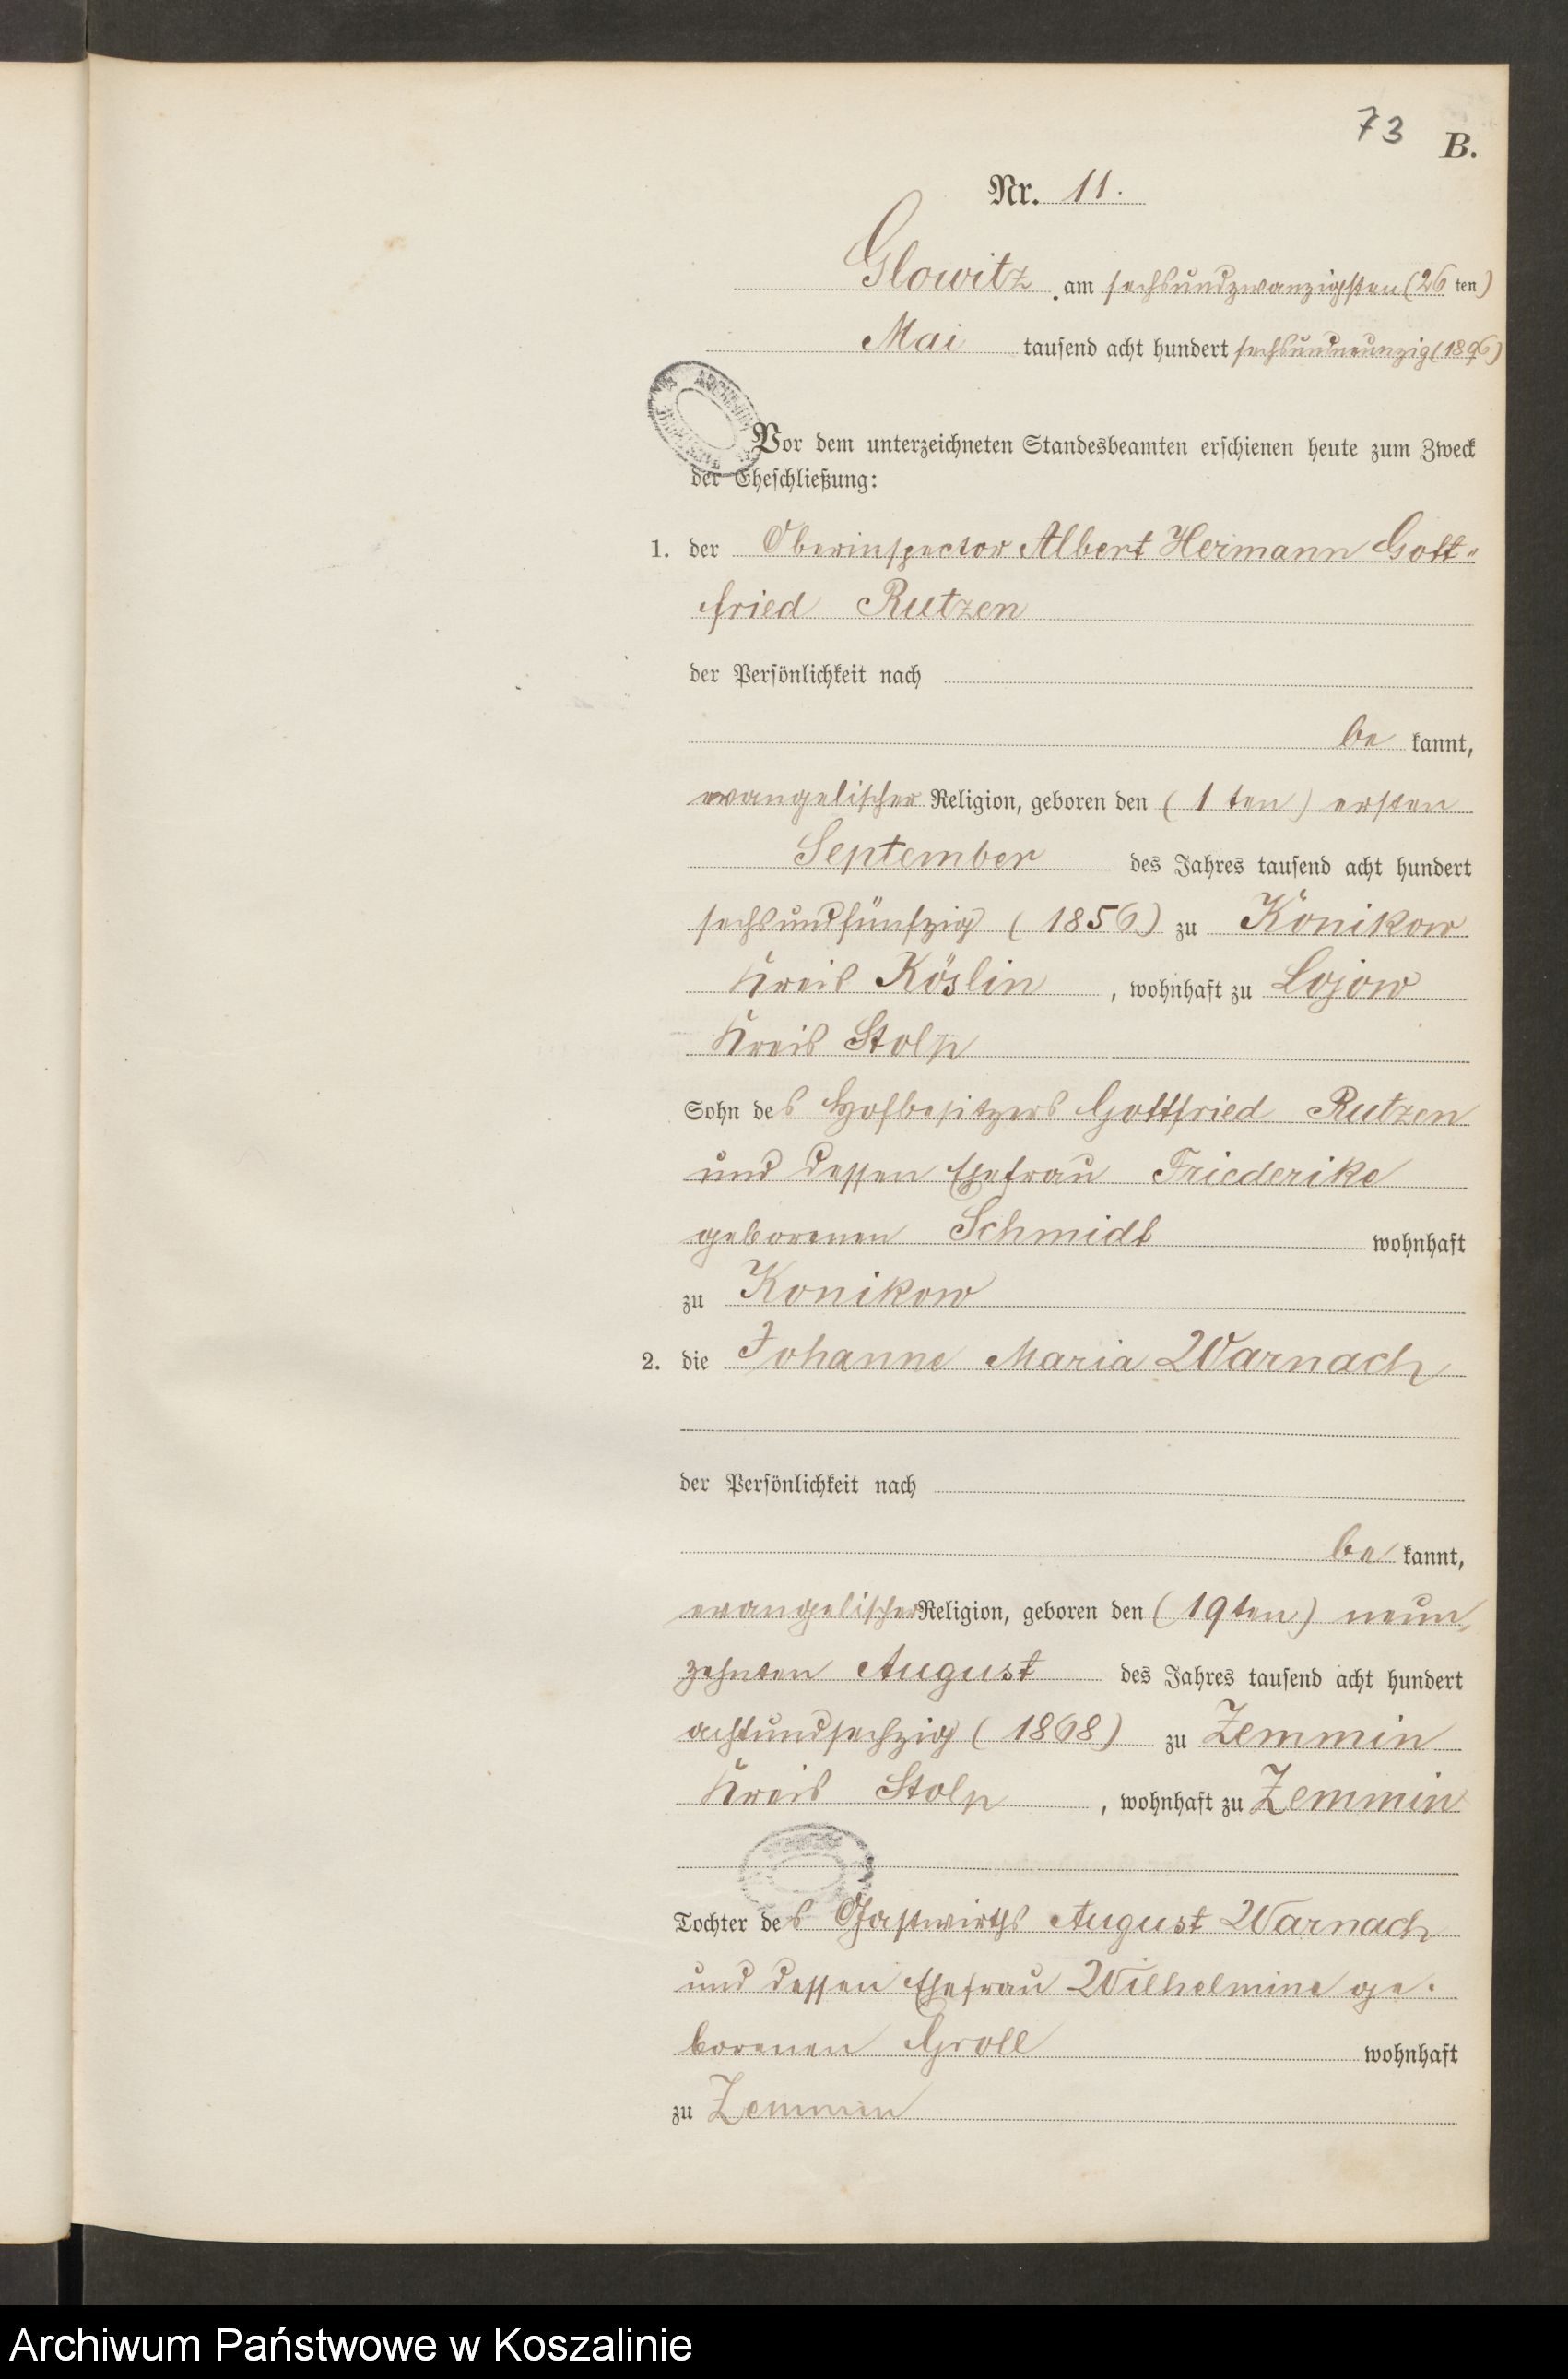 73
B.
Nr. 11.
Glowitz am sechsundzwanzigsten (26 ten)
Mai tausend acht hundert sechsundneunzig (1896)
Vor dem unterzeichneten Standesbeamten erschienen heute zum Zweck
der Eheschließung:
1. der Oberinspector Albert Hermann Gott-
fried Rutzen
der Persönlichkeit nach
be kannt,
evangelischer Religion, geboren den (1 ten) ersten
September des Jahres tausend acht hundert
sechsundfünfzig (1856) zu Konikow
Kreis Köslin, wohnhaft zu Lojow
Kreis Stolp
Sohn des Hofbesitzers Gottfried Rutzen
und dessen Ehefrau Friederike
geborenen Schmidt wohnhaft
zu Konikow
2. die Johanne Maria Warnach
der Persönlichkeit nach
be kannt,
evangelischer Religion, geboren den (19ten) neun-
zehnten August des Jahres tausend acht hundert
achtundsechzig (1868) zu Zemmin
Kreis Stolp, wohnhaft zu Zemmin
Tochter des Gastwirths August Warnach
und dessen Ehefrau Wilhelmine ge-
borenen Groll wohnhaft
zu Zemmin
Archiwum Państwowe w Koszalinie